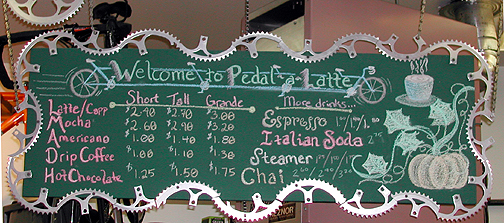 Welcome to Pedal-a-Latte
Short Tall Grande
Latte/Capp $2.40 $2.90 $3.00
Mocha $2.60 $2.90 $3.20
Americano $1.00 $1.40 $1.80
Drip Coffee $1.00 $1.10 $1.30
Hot Chocolate $1.25 $1.50 $1.75
More drinks...
Espresso
Italian Soda
Steamer
Chai